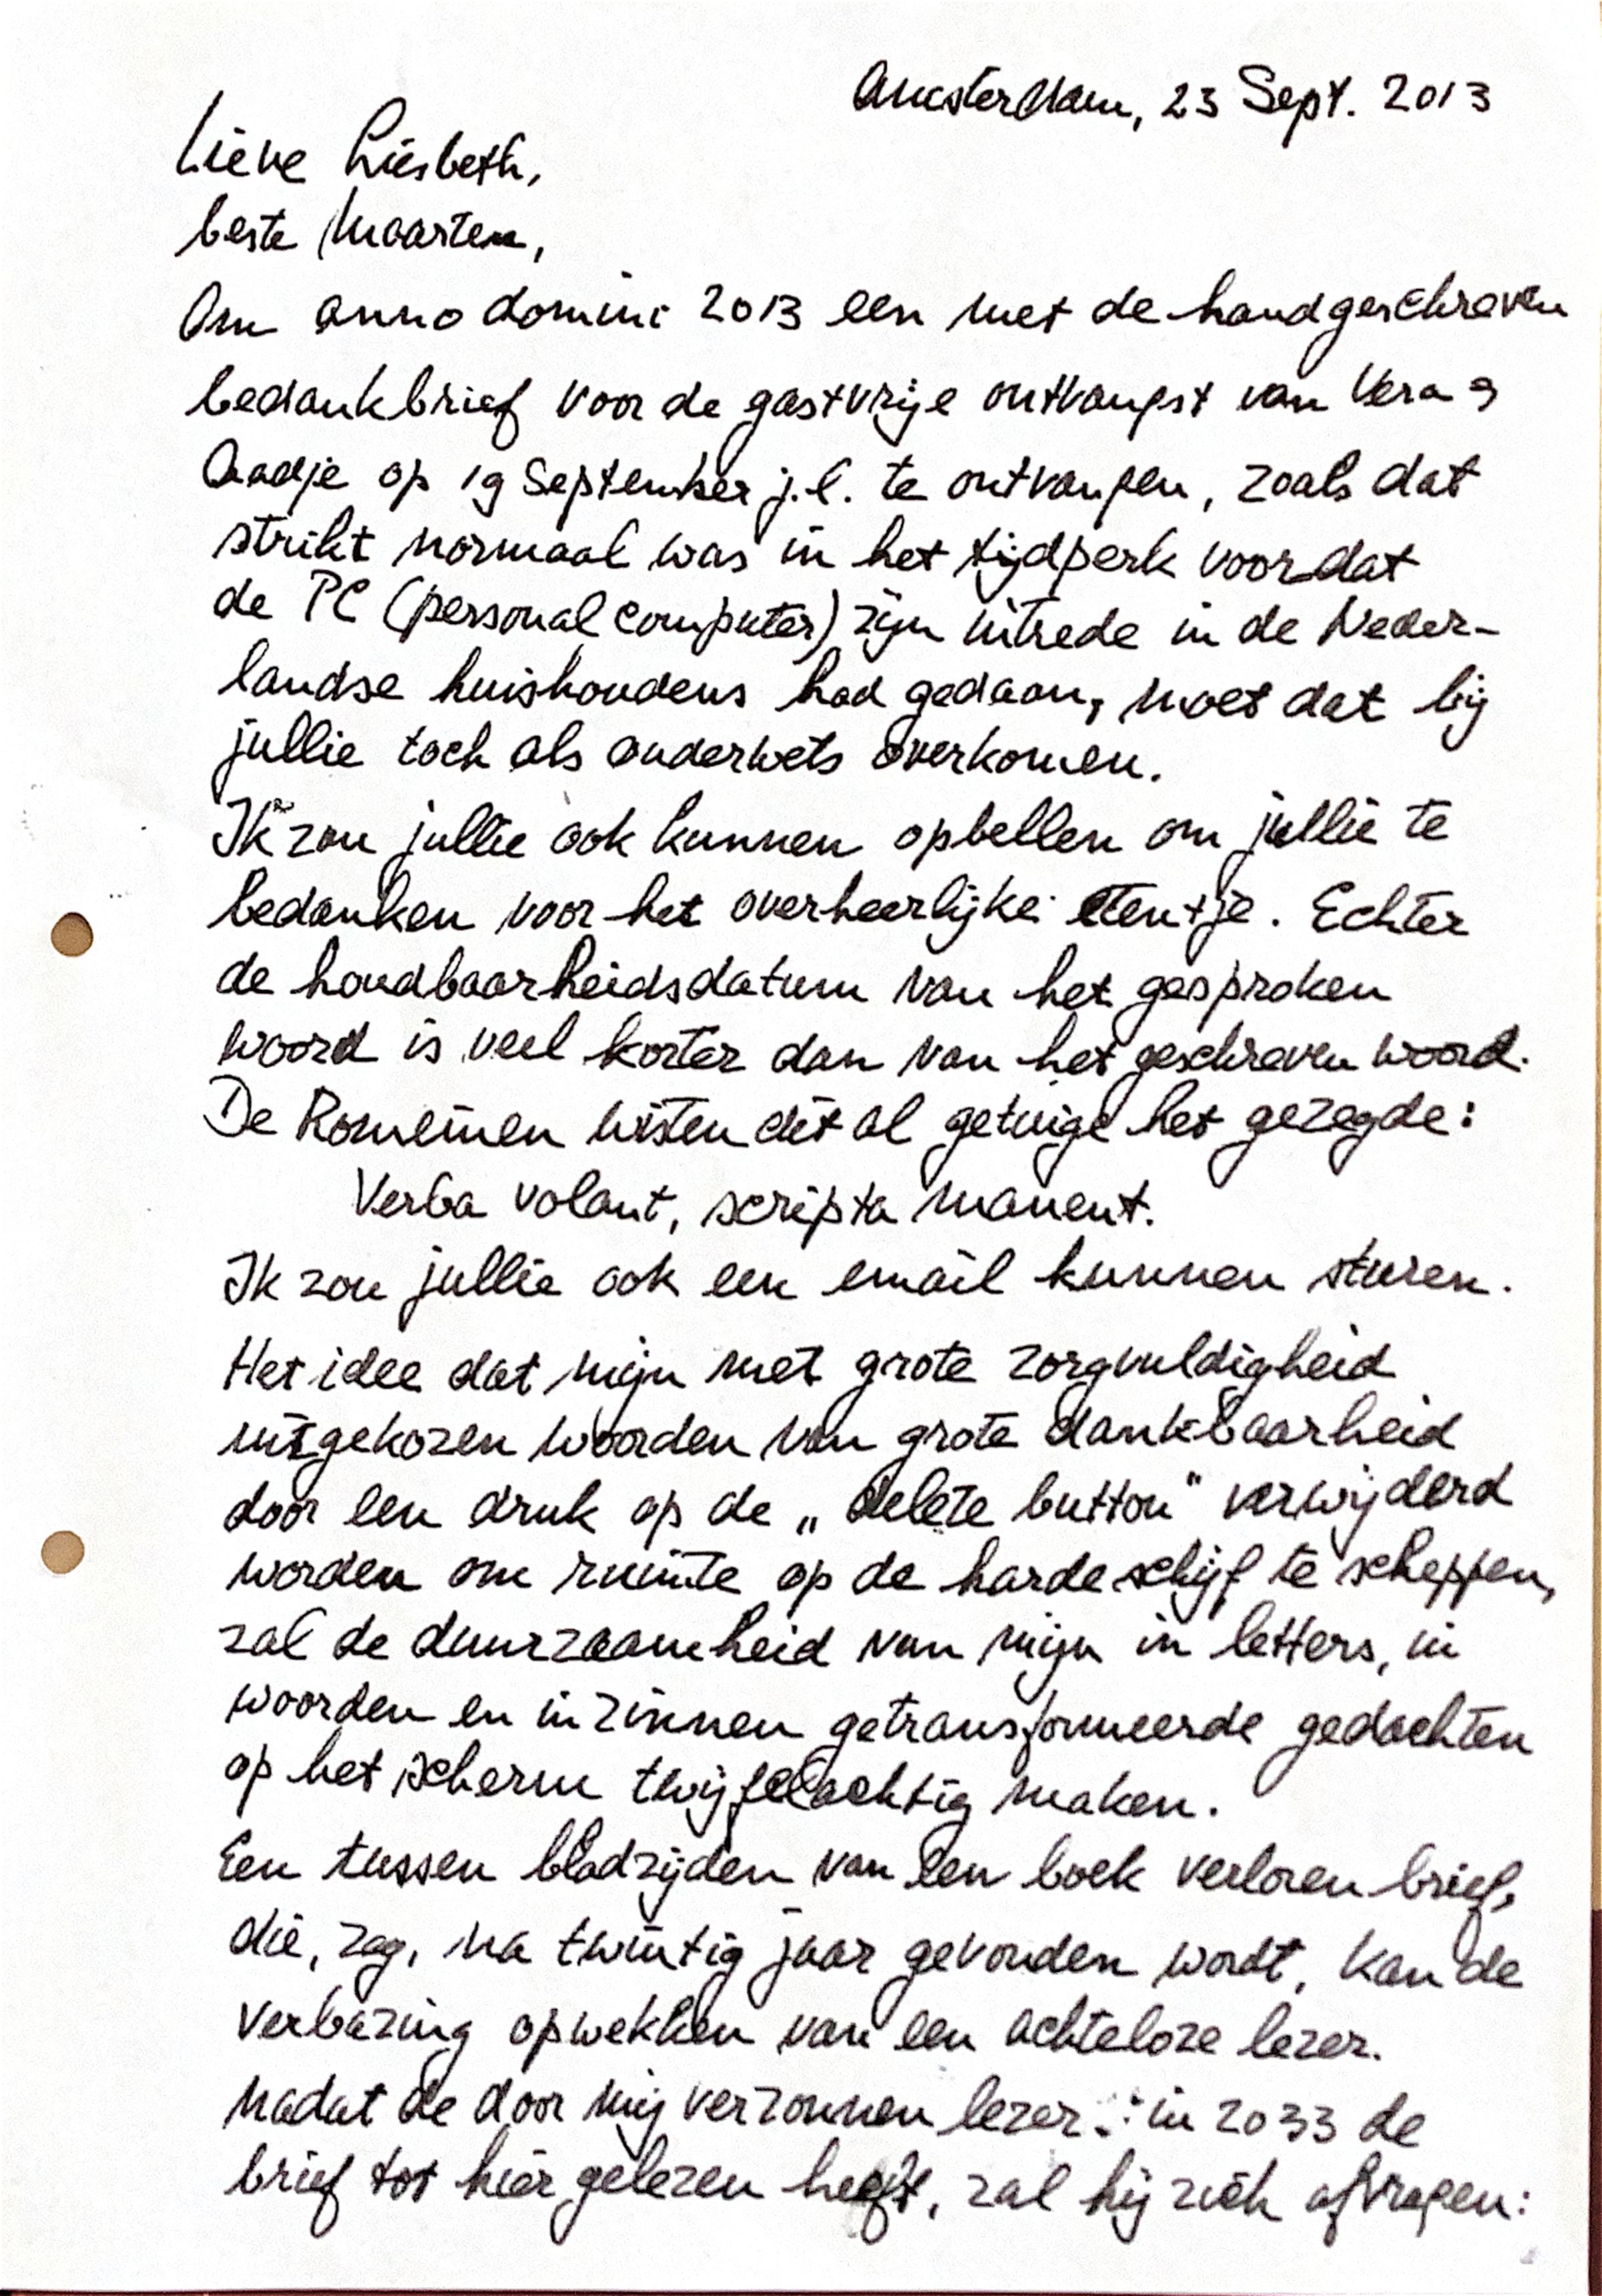 Amsterdam, 23 Sept. 2013
Lieve Liesbeth,
beste Maarten,
Om anno domini 2013 een met de handgeschreven
bedankbrief voor de gastvrije ontvangst van Vera &
Aadje op 19 September j.l. te ontvangen, zoals dat
strikt normaal was in het tijdperk voordat
de PC (personal computer) zijn intrede in de Neder-
landse huishoudens had gedaan, moet dat bij
jullie toch als ouderwets overkomen.
Ik zou jullie ook kunnen opbellen om jullie te
bedanken voor het overheerlijke etentje. Echter
de houdbaarheidsdatum van het gesproken
woord is veel korter dan van het geschreven woord.
De Romeinen wisten dit al getuige het gezegde:
Verba volant, scripta manent.
Ik zou jullie ook een email kunnen sturen.
Het idee dat mijn met grote zorgvuldigheid
uitgekozen woorden van grote dankbaarheid
door een druk op de „delete button" verwijderd
worden om ruimte op de harde schijf te scheppen,
zal de duurzaamheid van mijn in letters, in
woorden en in zinnen getransformeerde gedachten
op het scherm twijfelachtig maken.
Een tussen bladzijden van een boek verloren brief,
die, zeg, na twintig jaar gevonden wordt, kan de
verbazing opwekken van een achteloze lezer.
Nadat de door mij verzonnen lezer in 2033 de
brief tot hier gelezen heeft, zal hij zich afvragen: